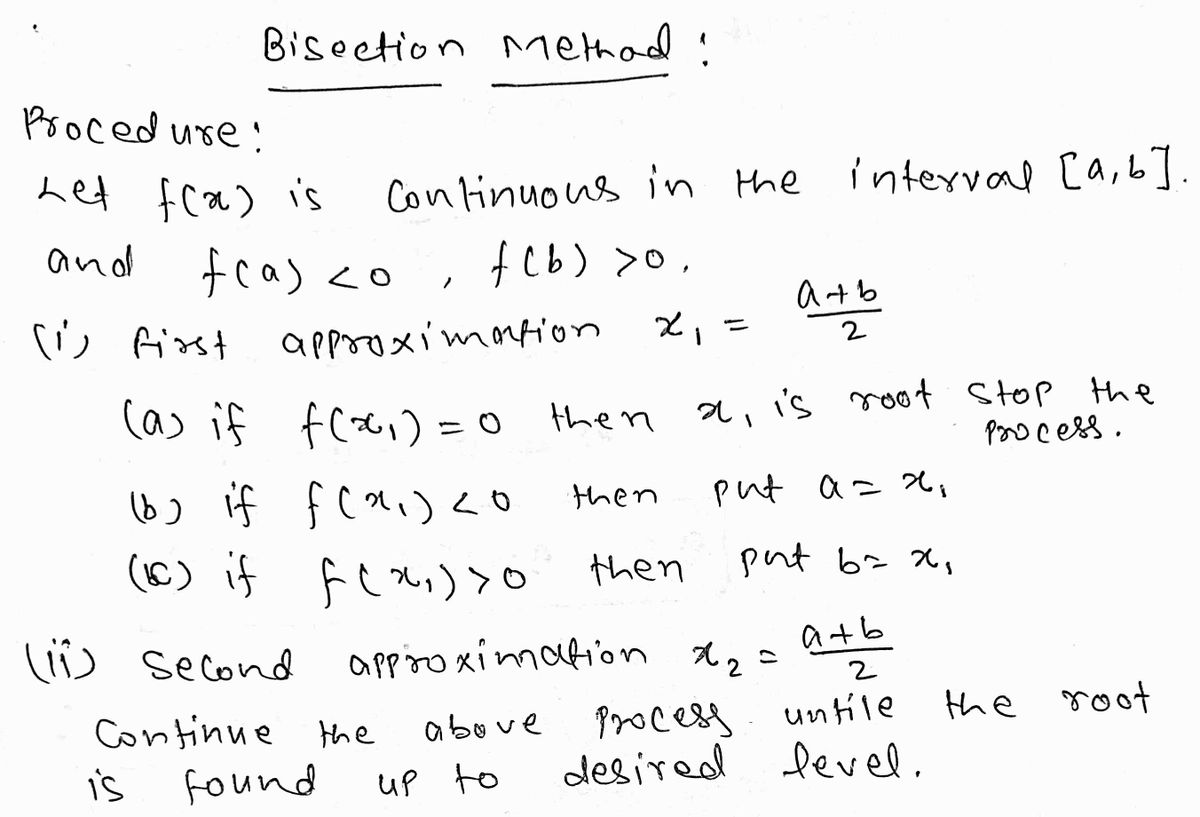 Bisection Method :
Procedure :
Let f(x) is Continuous in the interval [a,b].
and f(a) <0 , f(b) >0 ,
(i) first approximation x₁ = a+b/2
(a) if f(x₁) = 0 then x₁ is root stop the process.
(b) if f(x₁) <0 then put a = x₁
(c) if f(x₁) >0 then put b = x₁
(ii) Second approximation x₂ = a+b/2
Continue the above process untile the root
is found up to desired level.